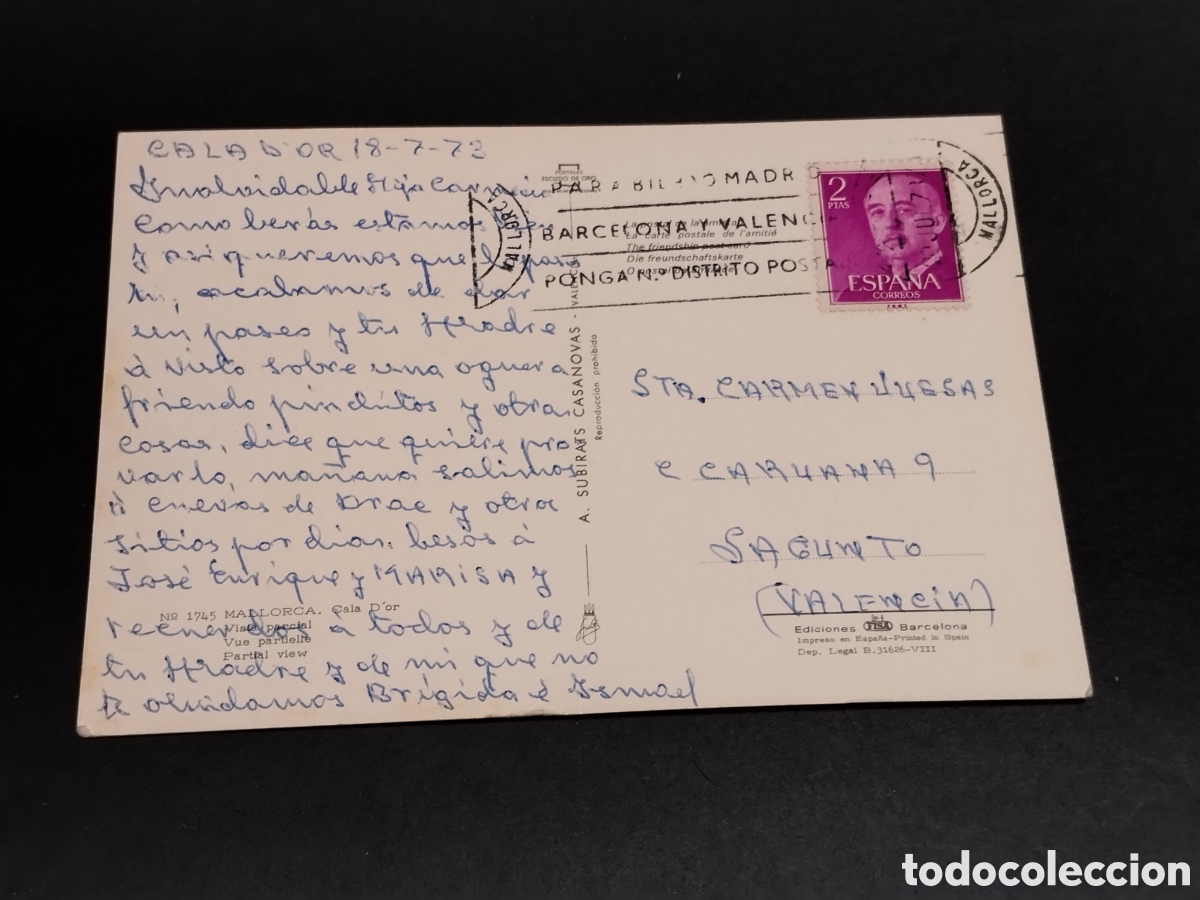 CALA D'OR 18-7-73
Inolvidable Hija Carmen
como berás estamos bien
y asi queremos que lo pases
tu, acabamos de dar
un paseo y tu Madre
á visto sobre una oguera
friendo pinchitos y otras
cosas, dice que quiere pro
varlo, mañana salimos
á cuevas de Drac y otros
sitios por dias. besos á
José Enrique y MARISA y
recuerdos á todos y de
tu Madre y de mi que no
te olvidamos Brigida é Ismael
Nº 1745 MALLORCA. Cala D'or
Vista parcial
Vue partielle
Partial view
POSTALES
ESCUDO DE ORO
La postal de la amistad
La carte postale de l'amitié
The friendship post card
Die freundschaftskarte
A. SUBIRATS CASANOVAS - VALENCIA
Reproducción prohibida
MALLORCA
PARA BILBAO MADRID
BARCELONA Y VALENCIA
PONGA N.º DISTRITO POSTAL
MALLORCA
2
PTAS
ESPAÑA
CORREOS
F.N.M.T.
STA. CARMEN
C CARUANA 9
SAGUNTO
(VALENCIA)
Ediciones FISA Barcelona
Impreso en España-Printed in Spain
Dep. Legal B.31626-VIII
todocoleccion